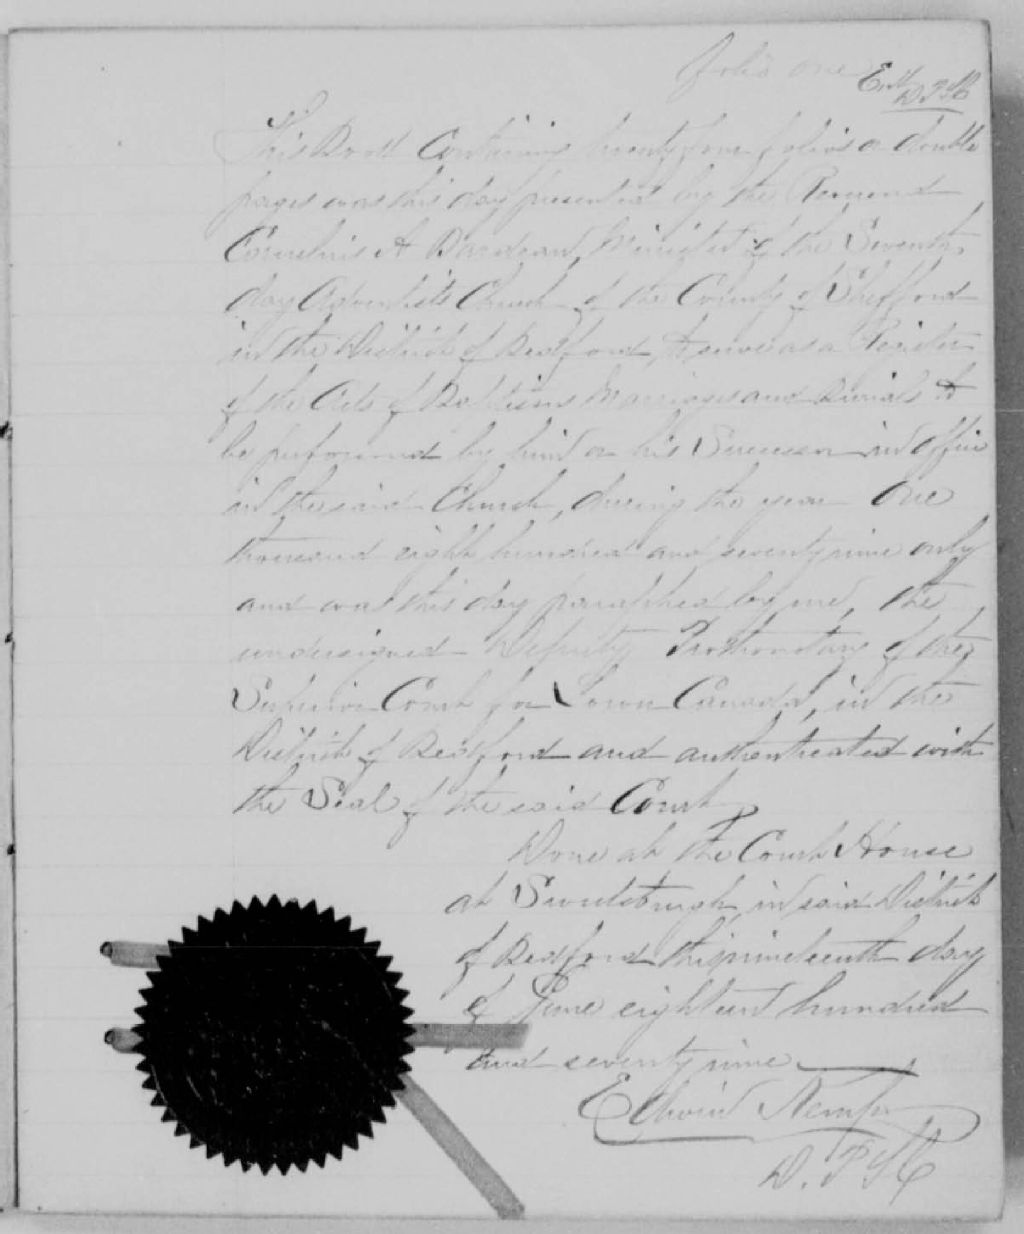 folio one E.K.
D.P.S.C
This Book Containing twenty four folios or double
pages was this day presented by the Reverend
Cornelius A Bardean, Minister of the Seventh
day Adventists Church of the County of Shefford
in the District of Bedford, to serve as a Register
of the Acts of Baptisms Marriages and Burials to
be performed by him or his Successor in office
in the said Church, during the year One
thousand eight hundred and seventy nine only
and was this day paraphed by me, the
undersigned Deputy Prothonotary of the
Superior Court for Lower Canada, in the
District of Bedford and authenticated with
the Seal of the said Court,
Done at the Court House
at Sweetsburgh, in said District
of Bedford this nineteenth day
of June eighteen hundred
and seventy nine
Edwin Kemp
D. P. S. C